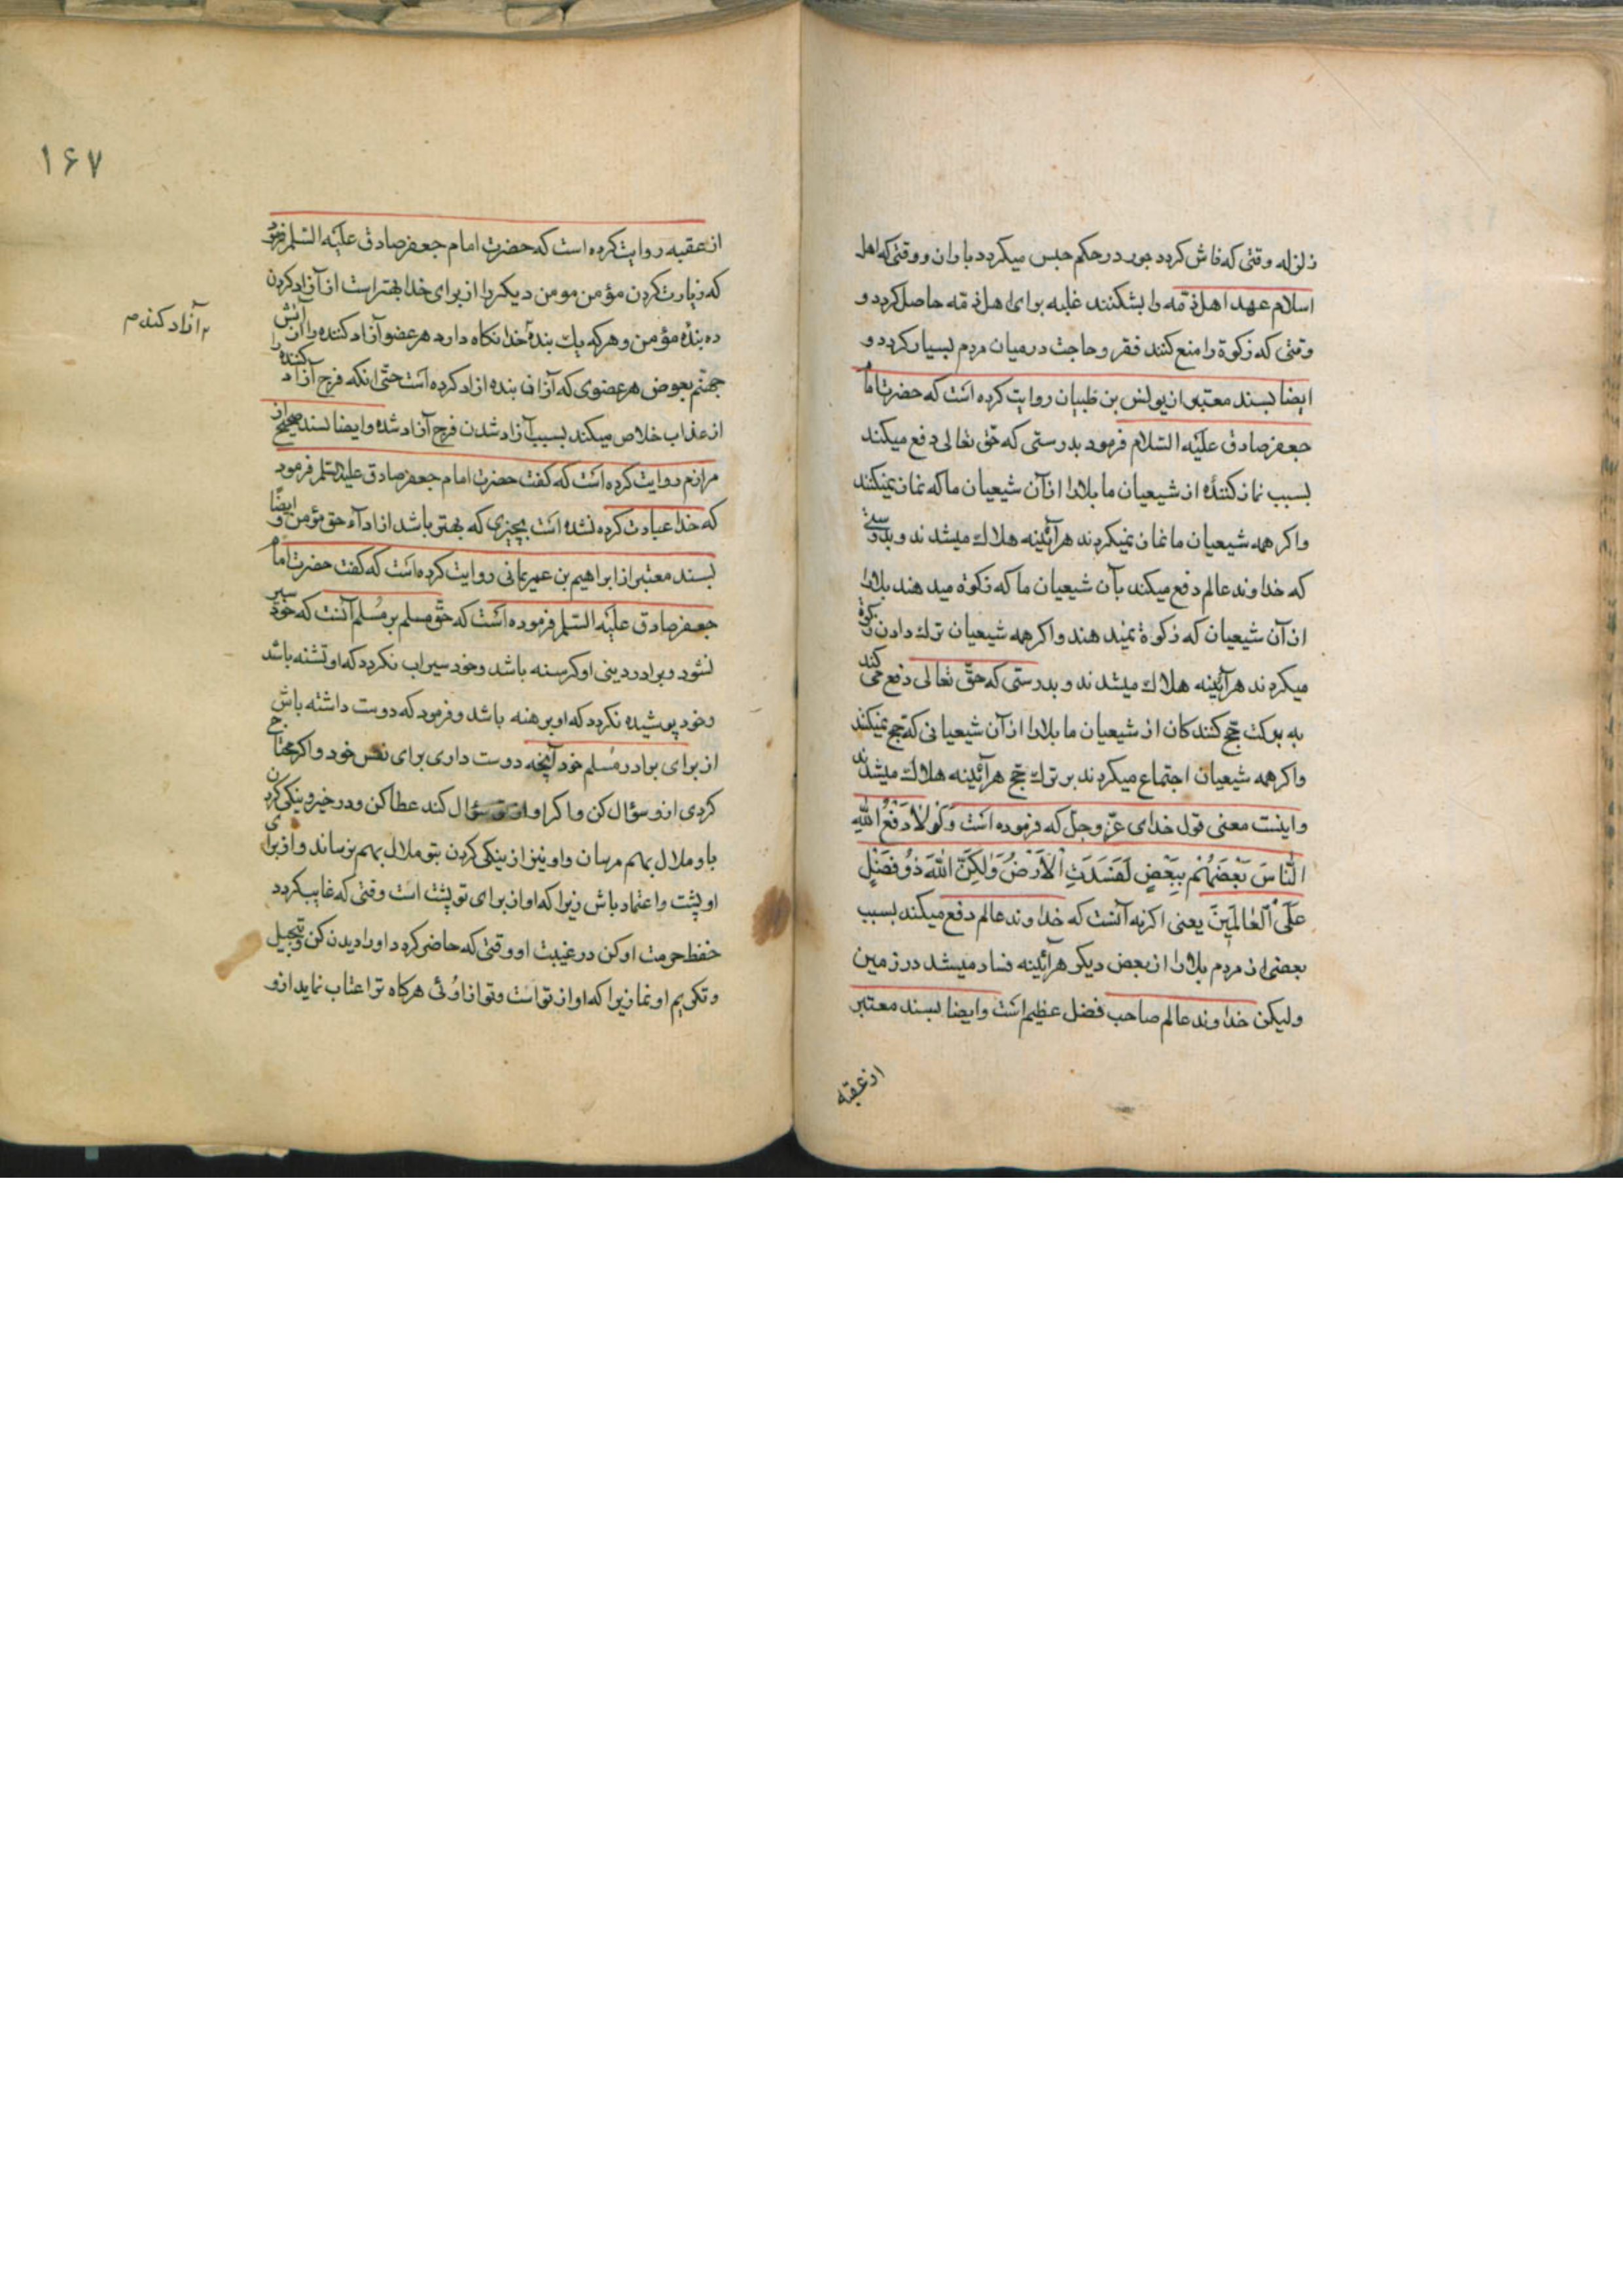 زلزله وقتی که فاش گردد جور در حکم حبس میگردد باران و وقتی که اهل
اسلام عهد اهل ذمّه را بشکنند غلبه برای اهل ذمّه حاصل گردد و
وقتی که زکوة را منع کنند فقر و حاجت در میان مردم بسیار گردد و
ایضا بسند معتبر از یونس بن ظبیان روایت کرده است که حضرت امام
جعفر صادق علیه السلام فرمود بدرستی که حق تعالی دفع میکند
بسبب نماز کننده از شیعیان ما بلا را از آن شیعیان ما که نماز نمیکنند
و اگر همه شیعیان ما نماز نمیکردند هرآئینه هلاك میشدند و بدرستی
که خداوند عالم دفع میکند بآن شیعیان ما که زکوة میدهند بلا را
از آن شیعیان که زکوة نمیدهند و اگر همه شیعیان ترك دادن زکوة
میکردند هرآئینه هلاك میشدند و بدرستی که حق تعالی دفع می کند
به برکت حج کنندکان از شیعیان ما بلا را از آن شیعیانی که حج نمیکنند
و اگر همه شیعیان اجتماع میکردند بر ترك حج هرآئینه هلاك میشدند
و اینست معنی قول خدای عزّ و جلّ که فرموده است وَلَوْلَا دَفْعُ اللهِ
النَّاسَ بَعْضَهُمْ بِبَعْضٍ لَفَسَدَتِ الْاَرْضُ وَلٰكِنَّ اللهَ ذُو فَضْلٍ
عَلَى الْعٰالَمِينَ یعنی اگر نه آنست که خداوند عالم دفع میکند بسبب
بعضی از مردم بلا را از بعض دیگر هرآئینه فساد میشد در زمین
ولیکن خداوند عالم صاحب فضل عظیم است و ایضا بسند معتبر
از عقبه
۱۶۷
از عقبه روایت کرده است که حضرت امام جعفر صادق علیه السلم فرمود
که زیارت کردن مؤمن مومن دیکر را از برای خدا بهتر است از آزاد کردن
ده بندۀ مؤمن و هر که یك بندۀ خدا نکاه دارد هر عضو آزاد کننده را از آتش
جهنم بعوض هر عضوی که آزان بنده ازاد کرده است حتی انکه فرج آزاد کننده را
از عذاب خلاص میکند بسبب آزاد شدن فرج آزاد شده و ایضا بسند صحیح از
مرازم روایت کرده است که کفت حضرت امام جعفر صادق علیه السلم فرمود
که خدا عبادت کرده نشده است بچیزی که بهتر باشد از ادآء حق مؤمن و ایضًا
بسند معتبر از ابراهیم بن عمر یمانی روایت کرده است که کفت حضرت امام
جعفر صادق علیه السلم فرموده است که حقّ مسلم بر مُسلم آنست که خود سیر
نشود و برادر دینی او کرسنه باشد و خود سیراب نکردد که او تشنه باشد
و خود پوشیده نکردد که او برهنه باشد و فرمود که دوست داشته باش
از برای برادر مُسلم خود آنچه دوست داری برای نفس خود و اکر محتاج
کردی ازو سؤال کن و اکر او از تو سؤال کند عطا کن و در خیر و نیکی کردن
باو ملال بهم مرسان و او نیز از نیکی کردن بتو ملال بهم نرساند و از برای
او پشت و اعتماد باش زیرا که او از برای تو پشت است وقتی که غایب کردد
حفظ حرمت او کن در غیبت او و وقتی که حاضر کردد او را دیدن کن و تبجیل
و تکریم او نما زیرا که او از تو است و تو از اوئی هر کاه ترا عتاب نماید ازو
آزاد کند م